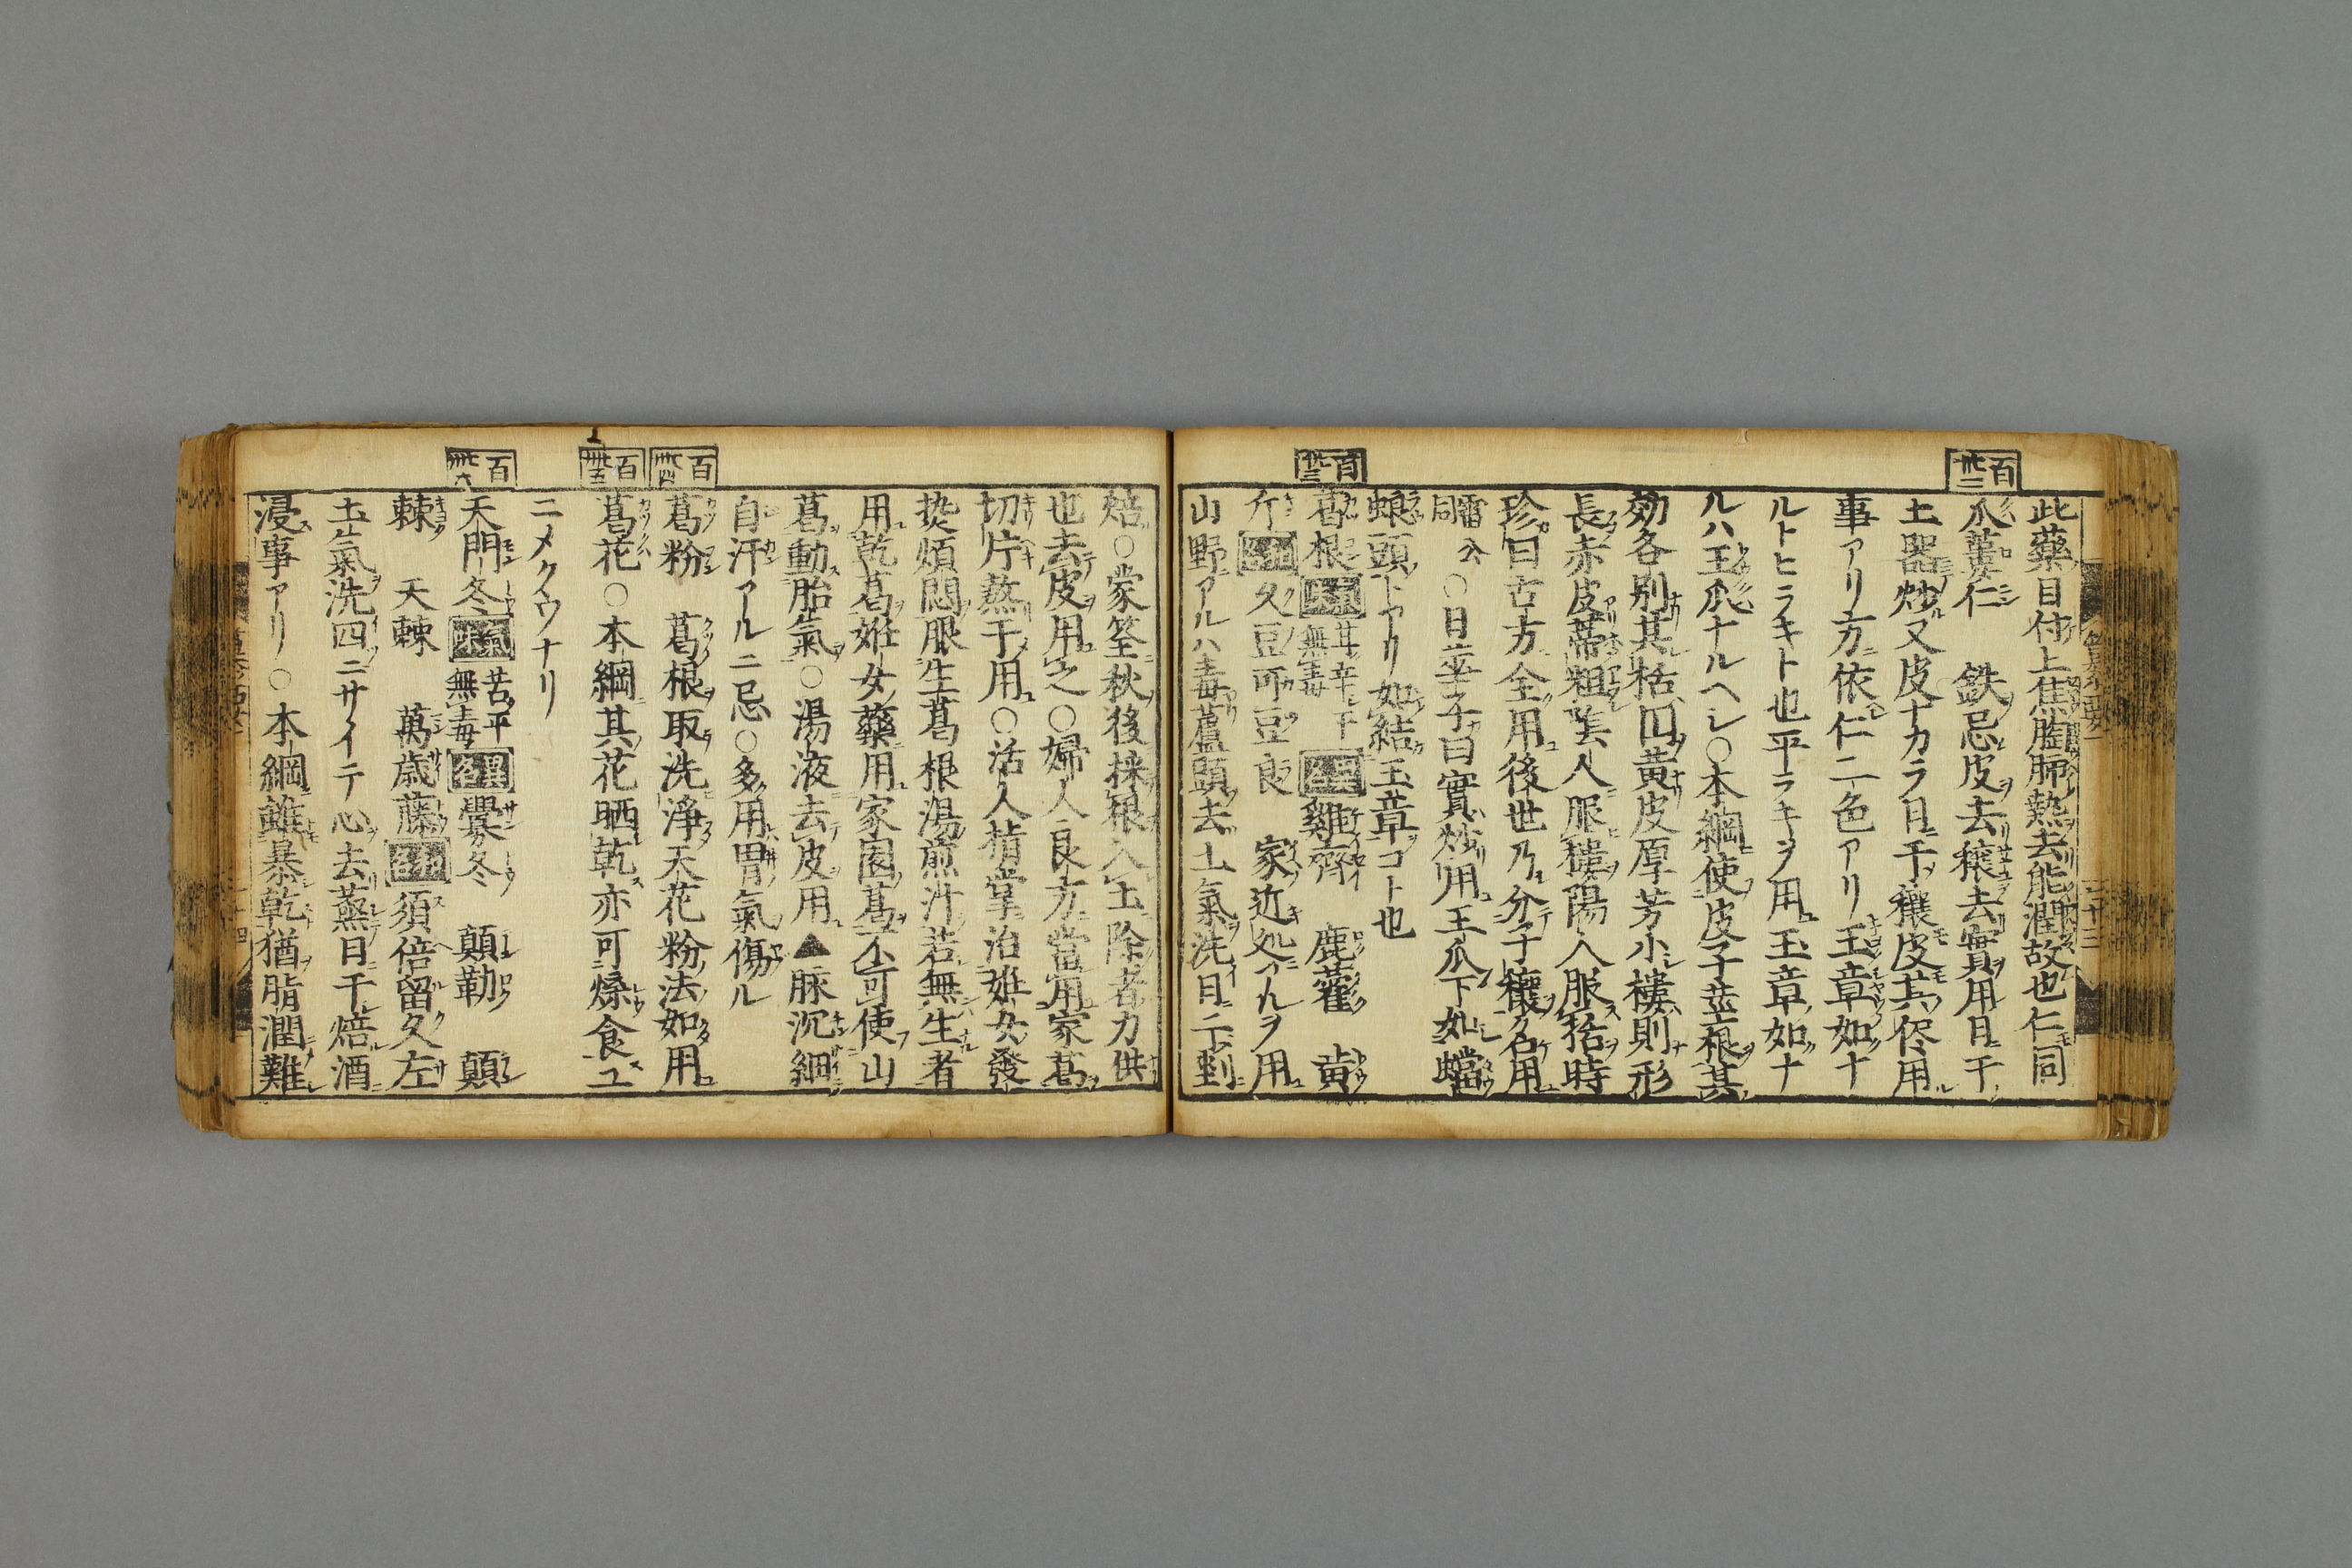 此藥目付上焦胸肺熱去能潤故也仁同
百卅二
瓜蔞仁 鉄忌皮去穣去實用日干
土器炒又皮ナカラ日干穰皮共侭用
事アリ方依仁二色アリ玉章如ナ
ルトヒラキト也平ラキヲ用玉章如ナ
ルハ王瓜ナルヘシ○本綱使皮子莖根其
効各別其栝圓黄皮厚芳小樓則形
長赤皮蒂粗陰人服樓陽人服栝時
珍曰古方全用後世乃分子穰各用
雷公同○日華子曰實炒用王瓜下如螳
螂頭トアリ如結玉章コト也
百卅三
葛根 氣味 甘辛平無毒 異名 雞齊 鹿藿 黄
斤 和名 久豆可豆良 家近処アルヲ用
山野アルハ毒蘆頭去土氣洗日干剉
焙○蒙筌秋後採根入土除者力供
也去皮用之○婦人良方當用家葛
切片蒸干用○活人指掌治姙女發
熱煩悶服生葛根湯煎汁若無生者
用乾葛姙女藥用家園葛不可使山
葛動胎氣○湯液去皮用▲脉沉細
自汗アルニ忌○多用胃氣傷ル
百卅四
葛粉 葛根取洗淨天花粉法如用
百卅五
葛花○本綱其花晒乾亦可煠食ユ
ニメクウナリ
百卅六
天門冬 氣味 苦平無毒 異名 虋冬 顛勒 顛
棘 天棘 萬歳藤 和名 須倍留久左
土氣洗四ニサイテ心去蒸日干焙酒
浸事アリ○本綱雖暴乾猶脂潤難